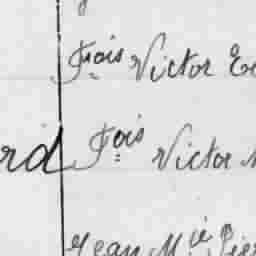 Fçois Victor
rd Fçois Victor
Jean M.ie Pier